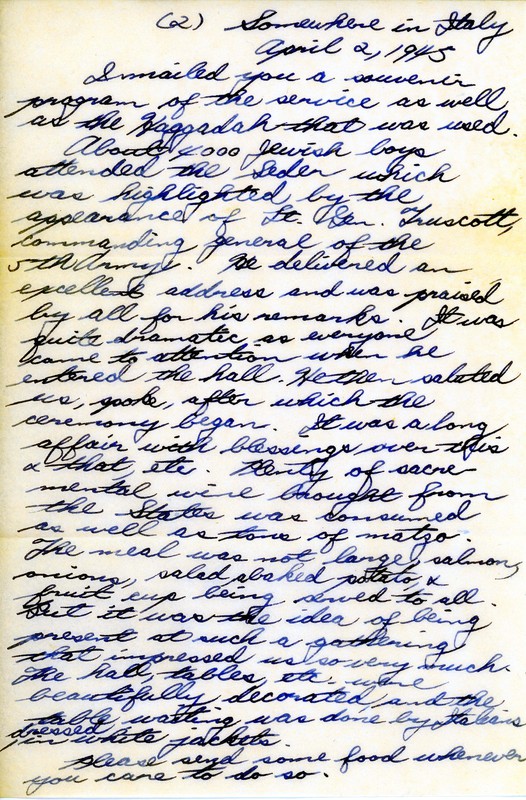 (2) Somewhere in Italy
April 2, 1945
I mailed you a souvenir
program of the service as well
as the Haggadah that was used.
About 4000 Jewish boys
attended the Seder which
was highlighted by the
appearance of Lt. Gen. Truscott,
commanding general of the
5th Army. He delivered an
excellent address and was praised
by all for his remarks. It was
quite dramatic as everyone
came to attention when he
entered the hall. He then saluted
us, spoke, after which the
ceremony began. It was a long
affair with blessings over this
& that, etc. Plenty of sacre-
mental wine brought from
the States was consumed
as well as tons of matzo.
The meal was not large, salmon,
onions, salad, baked potato, &
fruit cup being served to all.
But it was the idea of being
present at such a gathering
that impressed us so very much.
The hall, tables, etc. were
beautifully decorated, and the
table waiting was done by Italians
dressed in white jackets.
Please send some food whenever
you care to do so.